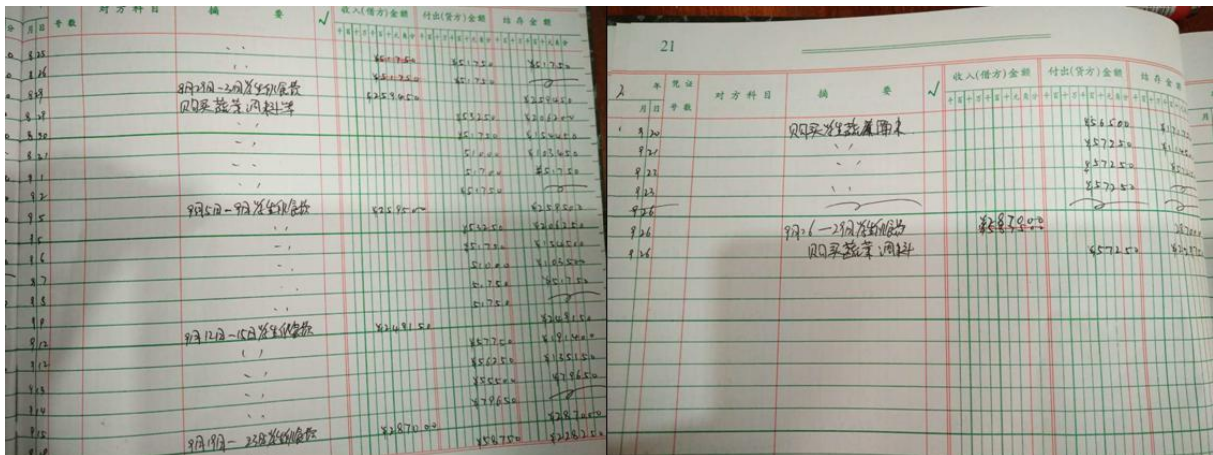 对方科目 摘要 √ 收入(借方)金额 付出(贷方)金额 结存金额
月 日 号数
8 25
8 26 ¥51750 ¥51750
8 29 8月29日-2日学生伙食费 ¥259450 ¥259450
8 29 购买蔬菜调料等 ¥53250 ¥206200
8 30 ¥51750 ¥154450
8 31 51000 ¥103450
9 1 51700 ¥51750
9 2 ¥51750
9 5 9月5日-9日学生伙食费 ¥259500 ¥259500
9 5 ¥53250 ¥206250
9 6 ¥51750 ¥154500
9 7 51000 ¥103500
9 8 51750 ¥51750
9 9 51750
9 12 9月12日-15日学生伙食费 ¥249150 ¥249150
9 12 ¥57750 ¥191400
9 13 ¥56250 ¥135150
9 14 ¥55500 ¥79650
9 15 ¥79650
9月19日-23日学生伙食费 ¥287000 ¥287000
¥58750 ¥228250
21
年 凭证 对方科目 摘要 √ 收入(借方)金额 付出(贷方)金额 结存金额
月 日 号数
9 20 购买学生蔬菜 ¥56500
9 21 ¥57250
9 22 ¥57250
9 23 ¥57250
9 26
9 26 9月26-29日学生伙食费 ¥287000
9 26 购买蔬菜调料 ¥57250